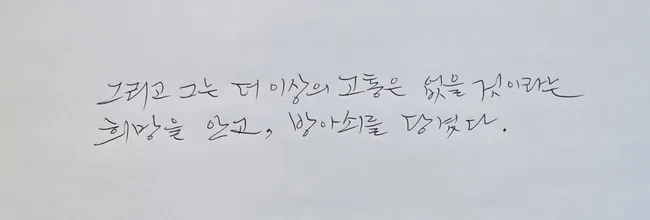 그리고 그는 더 이상의 고통은 없을 것이라는
희망을 안고, 방아쇠를 당겼다.